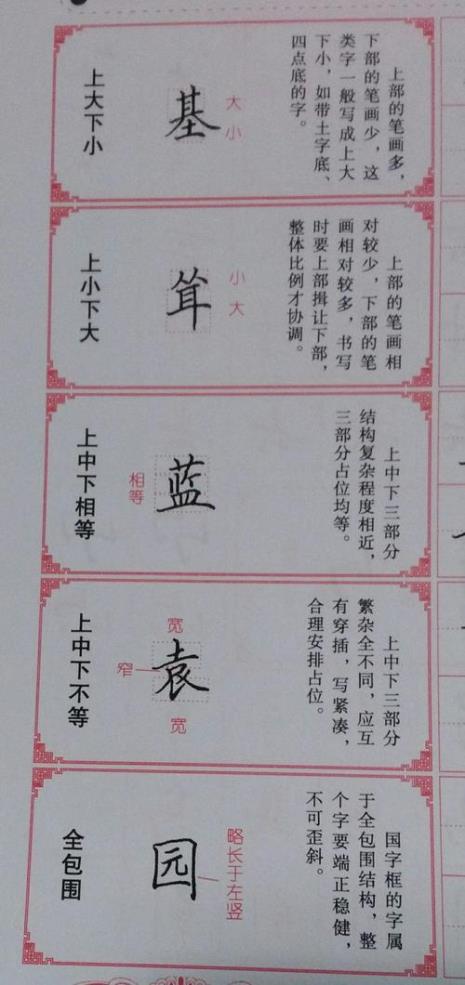 上大下小
基
大
小
上部的笔画多，
下部的笔画少，这
类字一般写成上大
下小，如带土字底、
四点底的字。
上小下大
笄
小
大
上部的笔画相
对较少，下部的笔
画相对较多，书写
时要上部揖让下部，
整体比例才协调。
上中下相等
蓝
相等
上中下三部分
结构复杂程度相近，
三部分占位均等。
上中下不等
袁
宽
窄
宽
上中下三部分
繁杂全不同，应互
有穿插，写紧凑，
合理安排占位。
全包围
园
略长于左竖
国字框的字属
于全包围结构，整
个字要端正稳健，
不可歪斜。